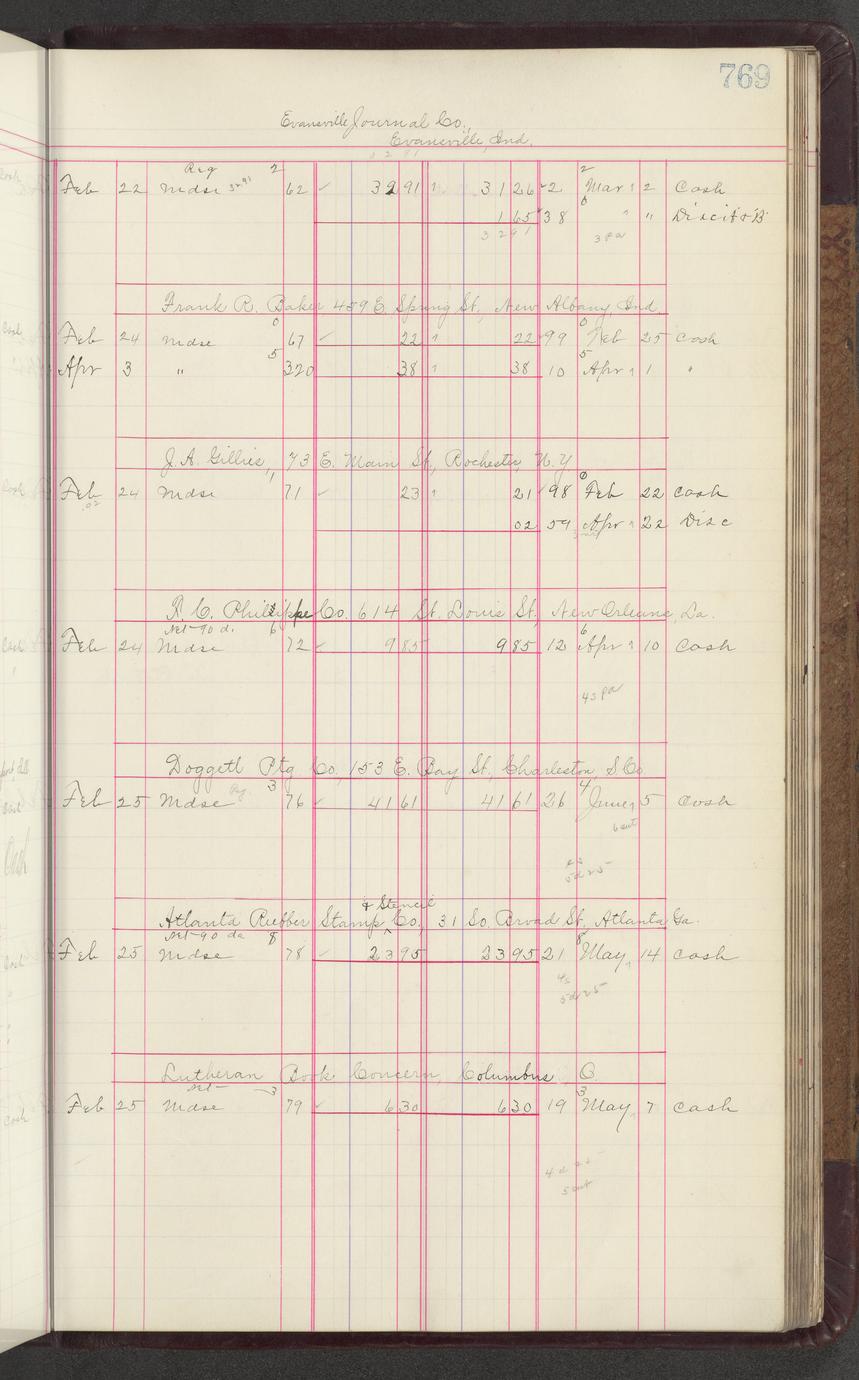 769
Evansville Journal Co.,
Evansville, Ind.
Reg 2 2
Feb 22 Mdse 3291 62 ✓ 32 91 31 26 2 Mar 2 Cash
0
1 65 38 " " Disc
3 291 3 pa
Frank R. Baker 459 E. Spring St., New Albany, Ind.
0 0
Feb 24 Mdse 67 ✓ 22 22 99 Feb 25 Cash
5 5
Apr 3 " 320 38 38 10 Apr 1 "
J. A. Gillies, 73 E. Main St., Rochester, N.Y
1 0
Feb 24 Mdse 71 ✓ 23 21 98 Feb 22 Cash
.02 02 59 Apr 22 Disc
R. C. Philippe Co. 614 St. Louis St., New Orleans, La.
Net 90 d. 6 6
Feb 24 Mdse 72 ✓ 9 85 9 85 12 Apr 10 Cash
43 pa
Doggett Ptg Co. 153 E. Bay St., Charleston, S.Co.
Reg. 3 4
Feb 25 Mdse 76 ✓ 41 61 41 61 26 June 5 Cash
6 out
5d 25
& Stencil
Atlanta Rubber Stamp ^ Co., 31 So. Broad St., Atlanta Ga.
Net 90 da 8 8
Feb 25 Mdse 78 ✓ 23 95 23 95 21 May 14 Cash
5d 25
Lutheran Book Concern, Columbus, O.
Net 3 3
Feb 25 Mdse 79 ✓ 6 30 6 30 19 May 7 Cash
5 out